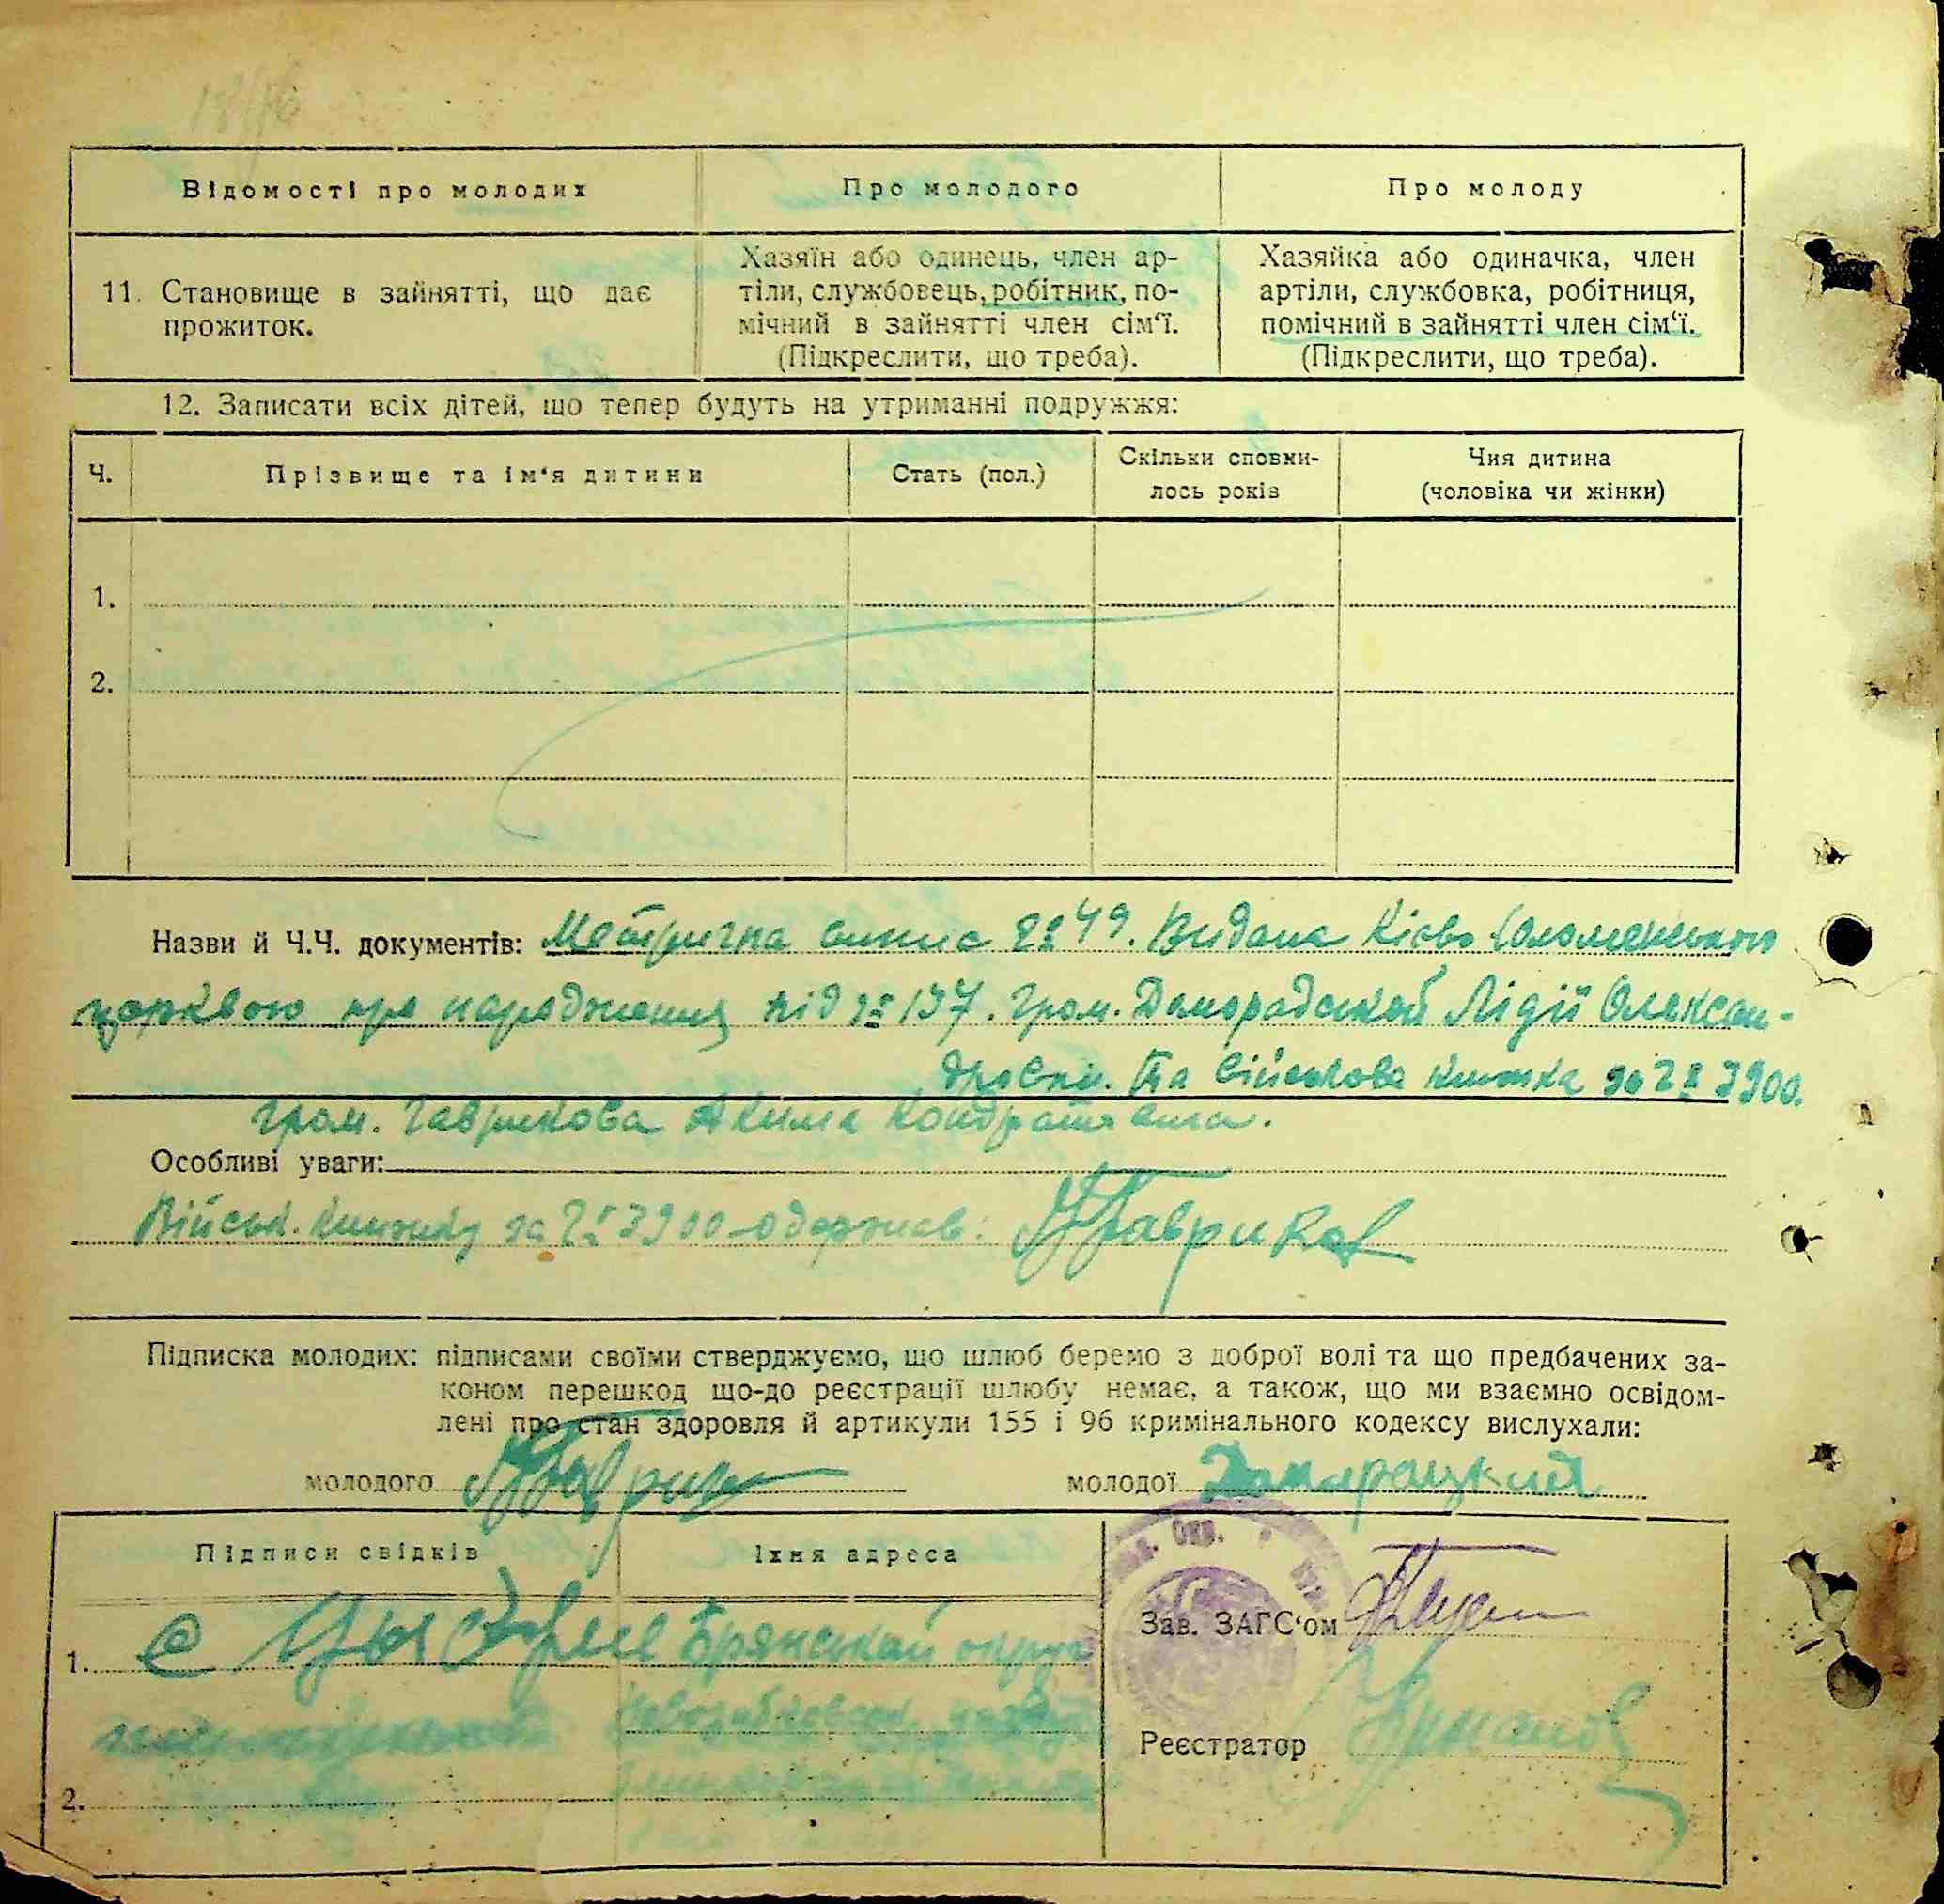 Відомості про молодих
Про молодого
Про молоду
11. Становище в зайнятті, що дає
прожиток.
Хазяїн або одинець, член ар-
тіли, службовець, робітник, по-
мічний в зайнятті член сім‘ї.
(Підкреслити, що треба).
Хазяйка або одиначка, член
артіли, службовка, робітниця,
помічний в зайнятті член сім‘ї.
(Підкреслити, що треба).
12. Записати всіх дітей, що тепер будуть на утриманні подружжя:
Ч.
Прізвище та ім‘я дитини
Стать (пол.)
Скільки сповни-
лось років
Чия дитина
(чоловіка чи жінки)
1.
2.
Назви й Ч.Ч. документів: Метрична випис 49. Видана Києво Соломенською
церквою про народження під № 137. Гром. Доморадской Лідії Олексан-
дровни. Та військова книжка за № 3900.
гром. Гаврикова Акима Кондратьевича.
Особливі уваги:
Військ. книжку за № 3900 одержав: Гавриков
Підписка молодих: підписами своїми стверджуємо, що шлюб беремо з доброї волі та що предбачених за-
коном перешкод що-до реєстрації шлюбу немає, а також, що ми взаємно освідом-
лені про стан здоровля й артикули 155 і 96 кримінального кодексу вислухали:
молодого
молодої
Підписи свідків
Їхня адреса
1.
Брянской округа
2.
Зав. ЗАГС‘ом
Реєстратор